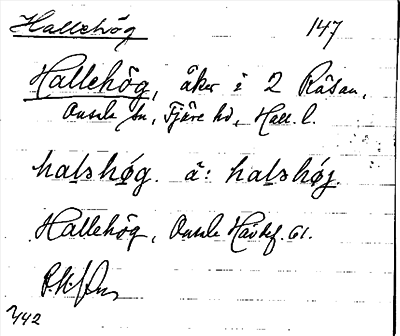 Hallehög 147
Hallehög, åker i 2 Råsan,
Onsala sn, Fjäre hd, Hall. l.
halshøg. ä: halshøj.
Hallehög, Onsala Havsf. 61.
442